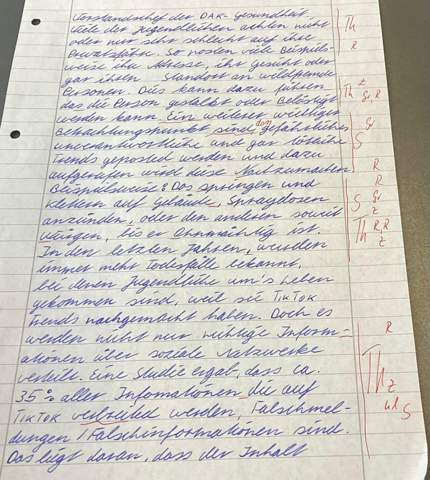 Vorstandschef der DAK-Gesundheit
viele der Jugendlichen achten nicht
oder nur sehr schlecht auf ihre
Privatsfähre. So posten viele Beispiels-
weise ihre Adresse, ihr gesicht oder
gar ihren Standort an wildfremde
Personen. Dies kann dazu führen
das die Person gestalkt oder Belästigt
werden kann. Ein weiterer wichtiger
Betrachtungspunkt sind dass gefährliches
unverantwortliche und gar tötliche
Trends geposted werden und dazu
aufgerufen wird diese Nachzumachen.
Beispielsweise: Das springen und
klettern auf gebäude, Spraydosen
anzünden, oder den anderen soweit
würgen, bis er Ohnmächtig ist.
In den letzten Jahren, wurden
immer mehr Todesfälle bekannt,
bei denen Jugendliche um's Leben
gekommen sind, weil sie TikTok
Trends nachgemacht haben. Doch es
werden nicht nur richtige Inform-
ationen über soziale Netzwerke
verteilt. Eine Studie ergab, dass ca.
35% aller Infomationen die auf
TikTok verbreited werden, Falschmel-
dungen / Falschinformationen sind.
Das liegt daran, dass der Inhalt
Th
R
Th Z
Gr, R
Gr
S
R
R
S Gr
Z
Th R, R
Z
R
Th Z
S